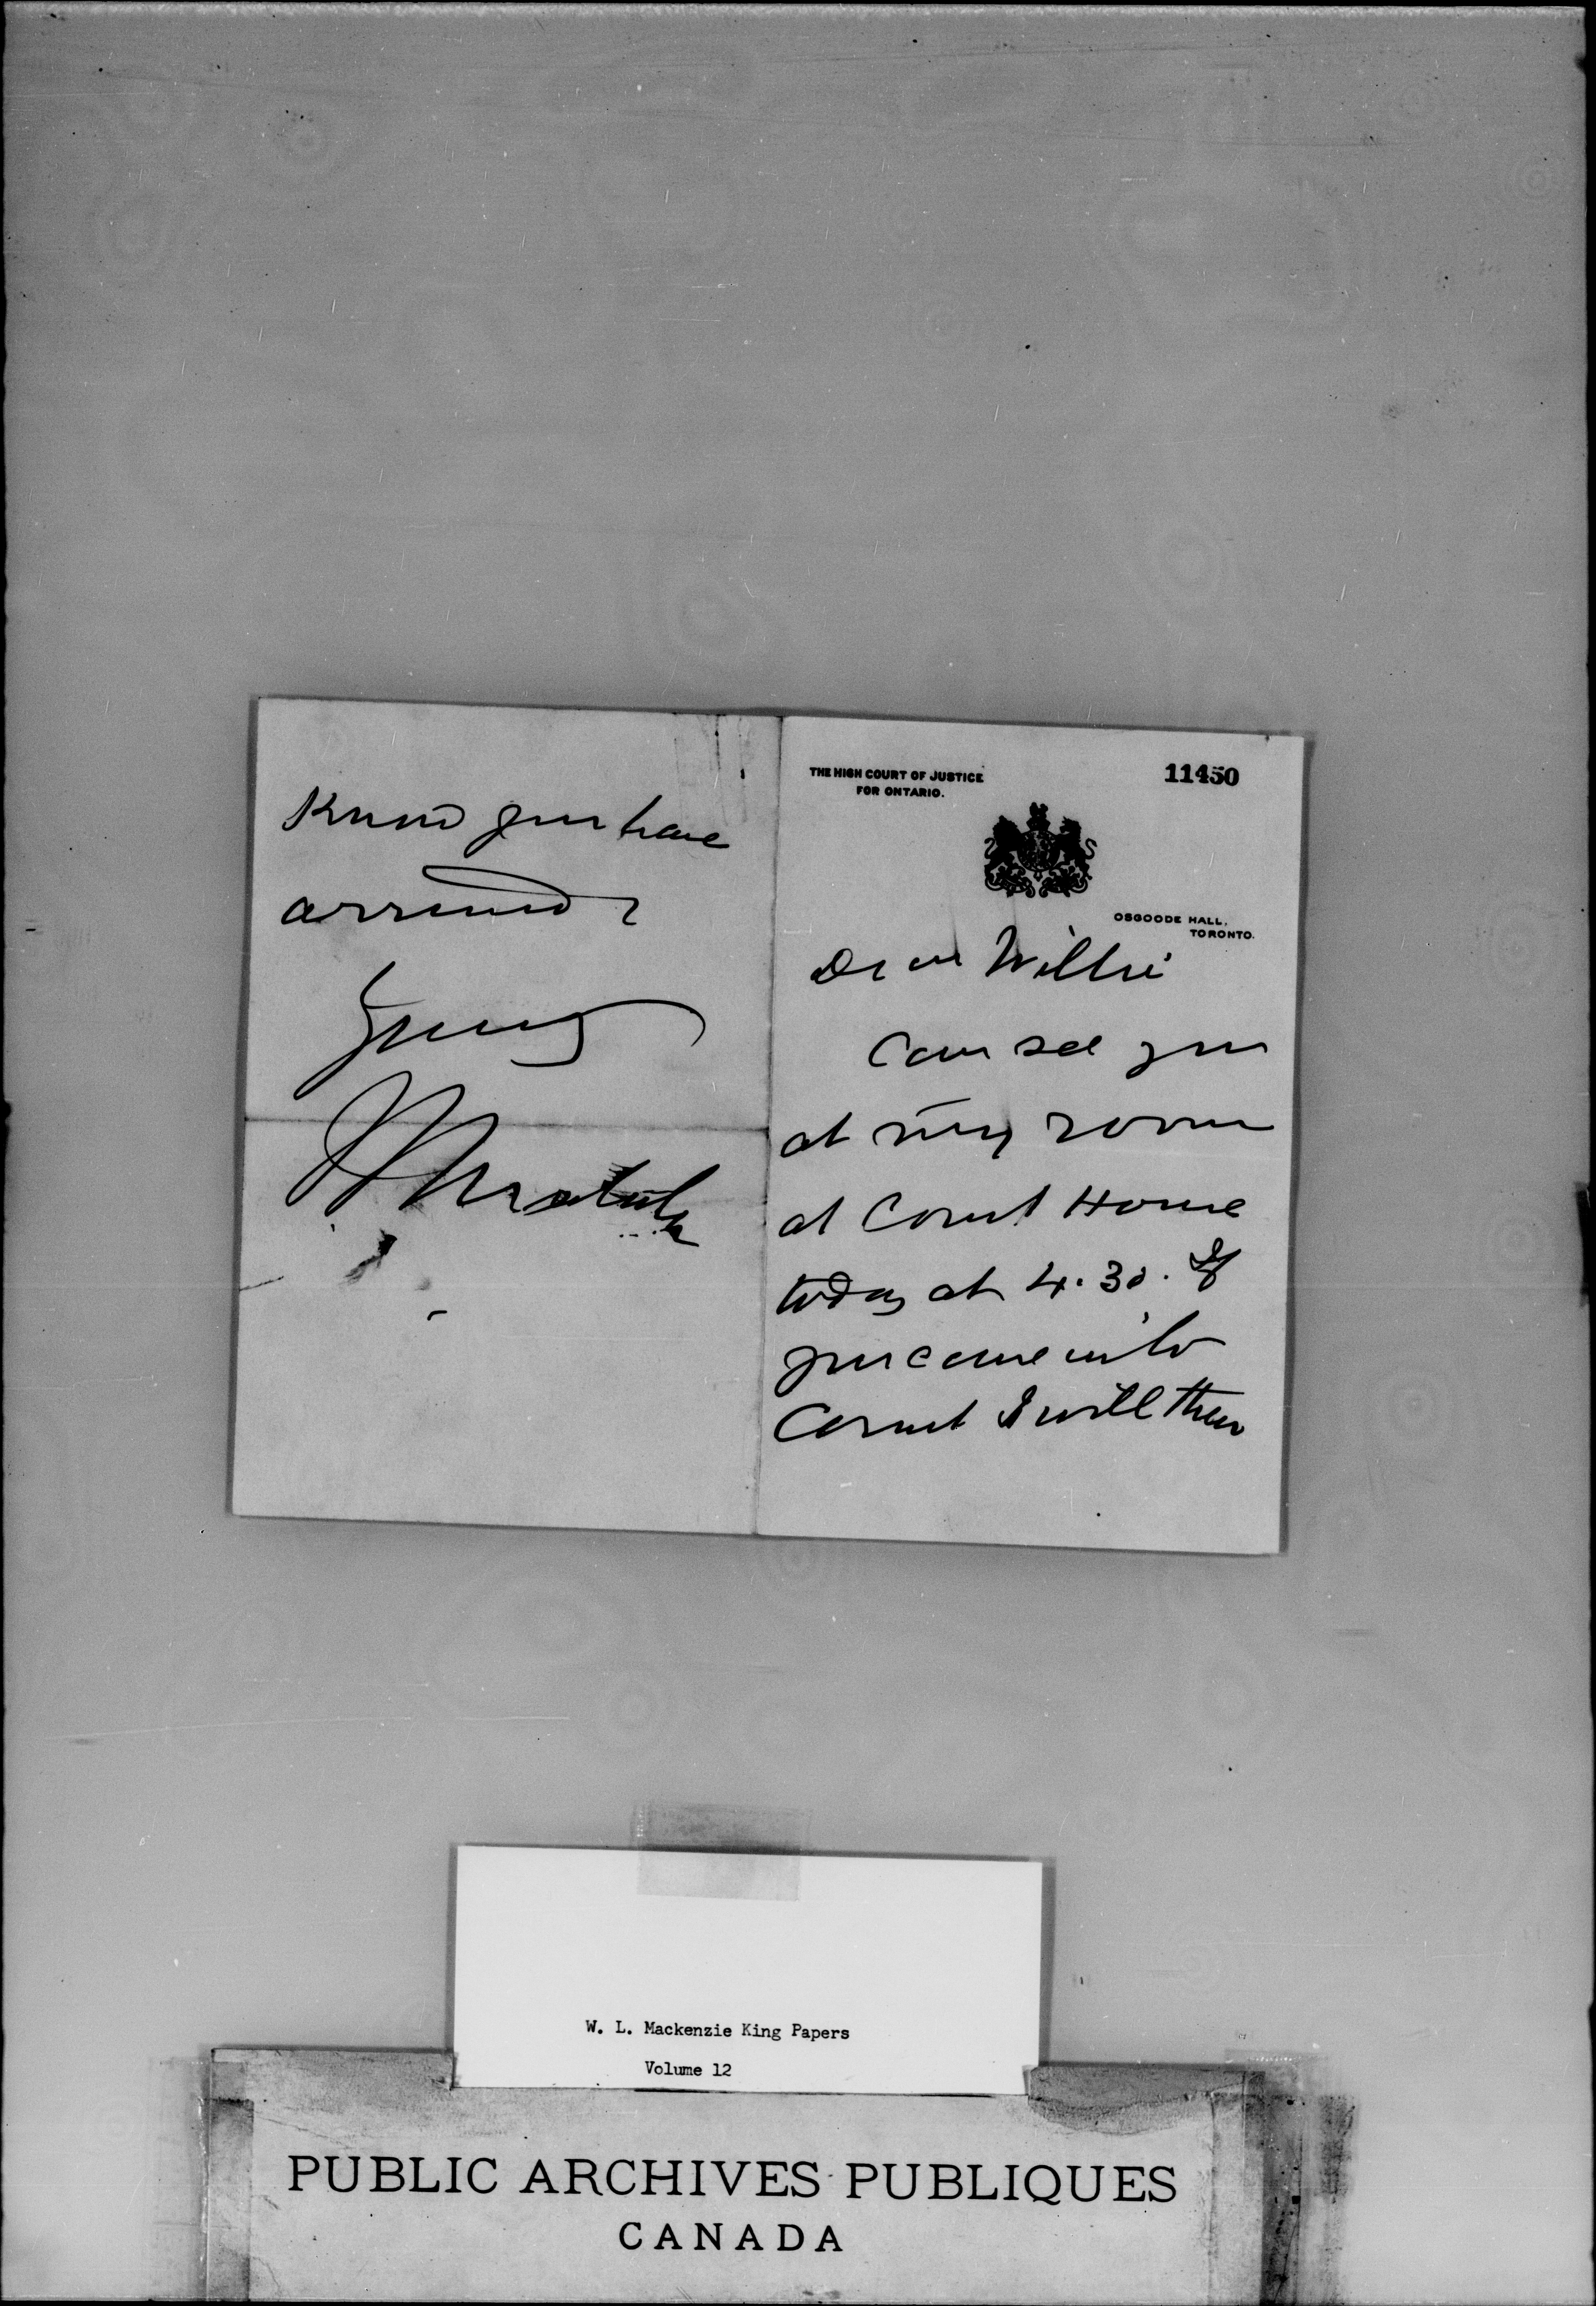 THE HIGH COURT OF JUSTICE
FOR ONTARIO.
11450
OSGOODE HALL,
TORONTO.
Dear Willie
Can see you
at my room
at Court House
today at 4.30. If
you come into
Court I will then
Know you have
arrived
Yours
W. L. Mackenzie King Papers
Volume 12
PUBLIC ARCHIVES PUBLIQUES
CANADA